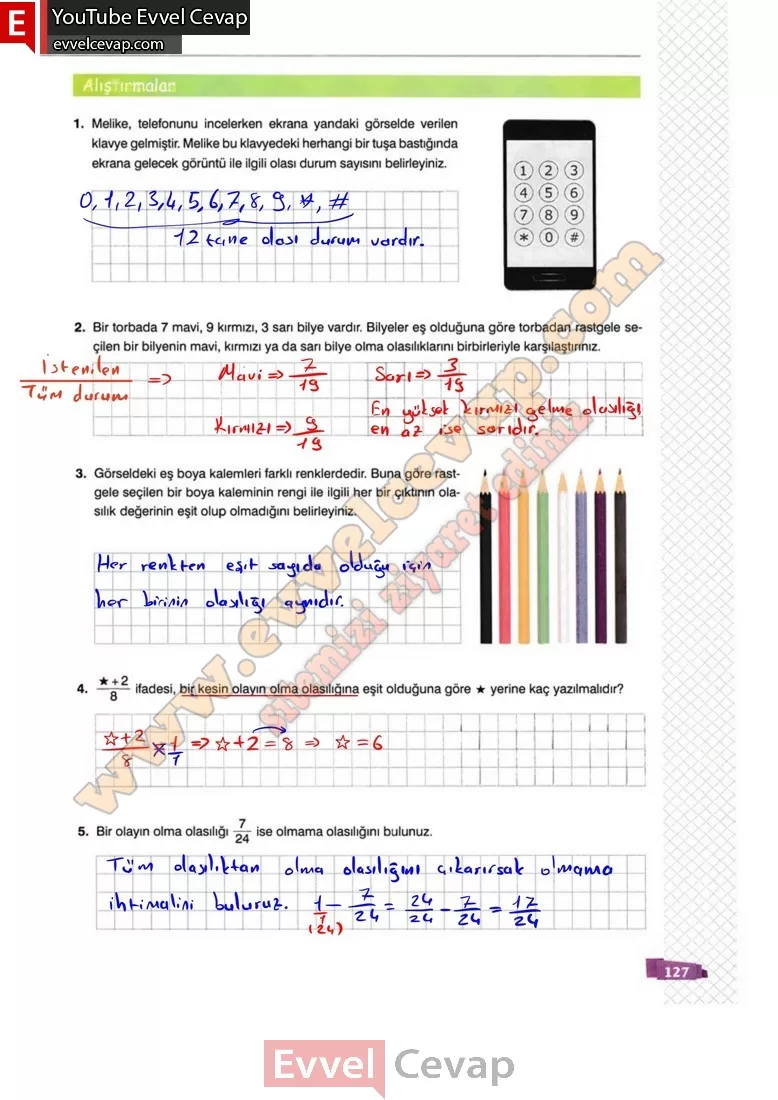 E YouTube Evvel Cevap
evvelcevap.com
Alıştırmalar
1. Melike, telefonunu incelerken ekrana yandaki görselde verilen
klavye gelmiştir. Melike bu klavyedeki herhangi bir tuşa bastığında
ekrana gelecek görüntü ile ilgili olası durum sayısını belirleyiniz.
1 2 3
4 5 6
7 8 9
* 0 #
0, 1, 2, 3, 4, 5, 6, 7, 8, 9, *, #
12 tane olası durum vardır.
2. Bir torbada 7 mavi, 9 kırmızı, 3 sarı bilye vardır. Bilyeler eş olduğuna göre torbadan rastgele se-
çilen bir bilyenin mavi, kırmızı ya da sarı bilye olma olasılıklarını birbirleriyle karşılaştırınız.
İstenilen / Tüm durum => Mavi => 7/19 Sarı => 3/19
Kırmızı => 9/19
En yüksek kırmızı gelme olasılığı
en az ise sarıdır.
3. Görseldeki eş boya kalemleri farklı renklerdedir. Buna göre rast-
gele seçilen bir boya kaleminin rengi ile ilgili her bir çıktının ola-
sılık değerinin eşit olup olmadığını belirleyiniz.
Her renkten eşit sayıda olduğu için
her birinin olasılığı aynıdır.
4. ★+2/8 ifadesi, bir kesin olayın olma olasılığına eşit olduğuna göre ★ yerine kaç yazılmalıdır?
☆+2/8 × 1/1 => ☆+2=8 => ☆=6
5. Bir olayın olma olasılığı 7/24 ise olmama olasılığını bulunuz.
Tüm olasılıktan olma olasılığını çıkarırsak olmama
ihtimalini buluruz. 1/1 - 7/24 = 24/24 - 7/24 = 17/24
(24)
127
www.evvelcevap.com
sitemizi ziyaret ediniz
Evvel Cevap